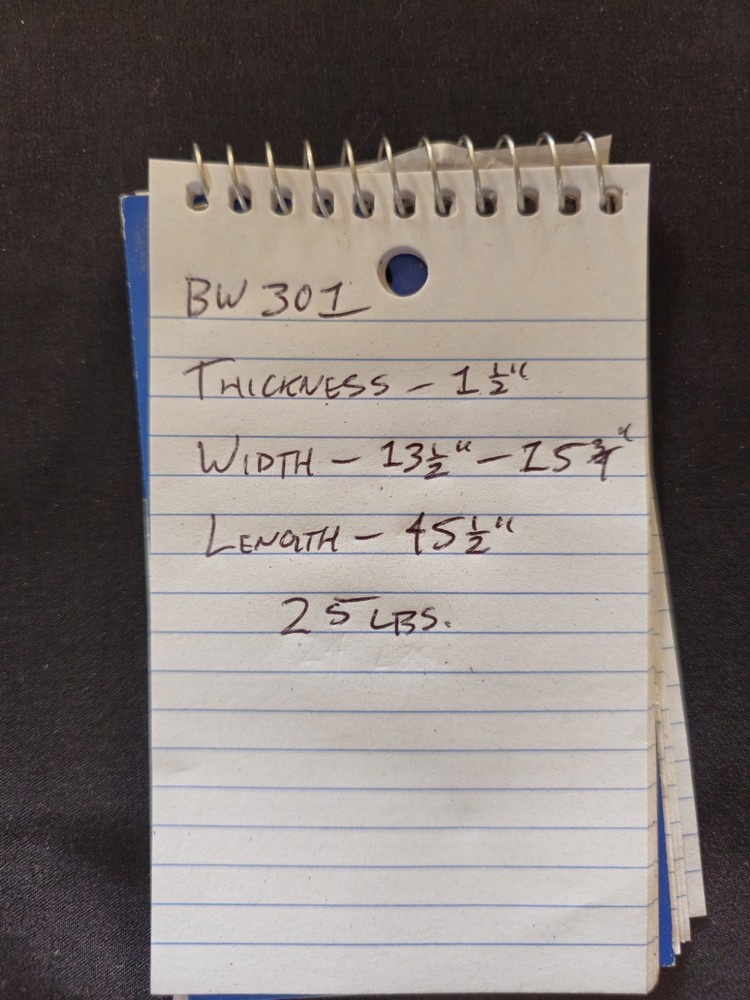 BW 301
THICKNESS - 1 1/2"
WIDTH - 13 1/2" - 15 3/4"
LENGTH - 45 1/2"
25 LBS.